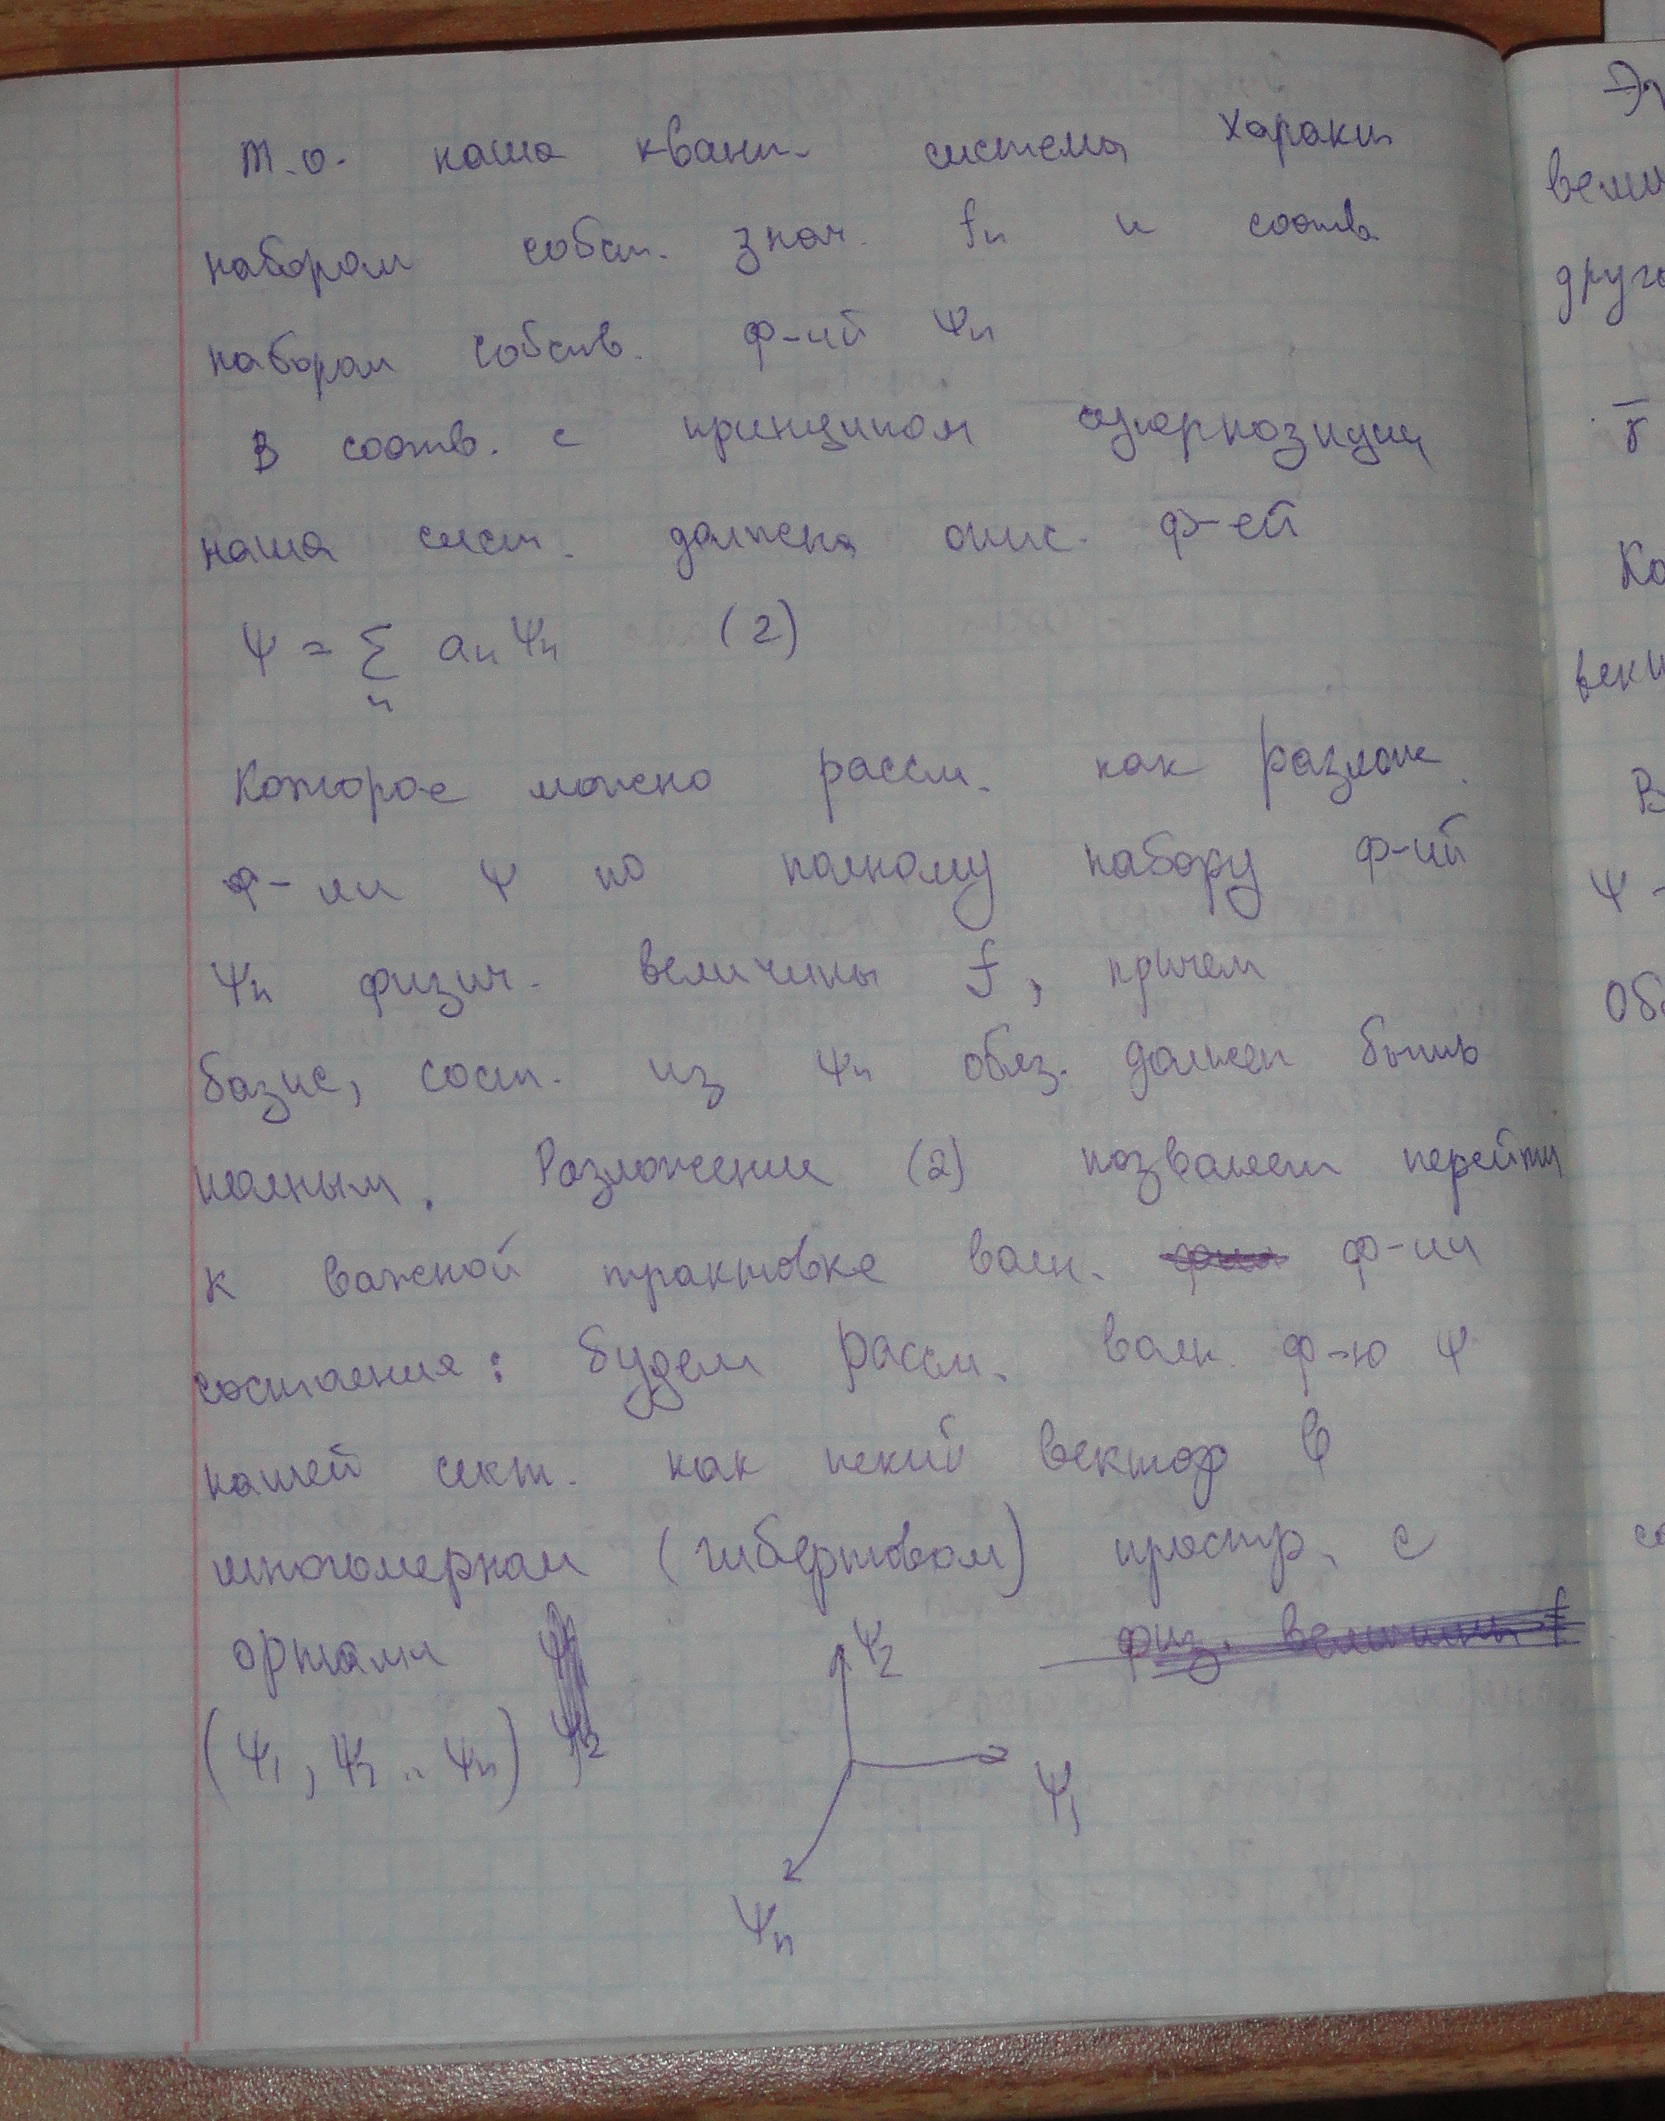 т.о. наша квант. система характ
набором собст. знач. fn и соотв
набором собств. ф-ий Ψn
В соотв. с принципом суперпозиции
наша сист. должна опис. ф-ей
Ψ = Σ an Ψn (2)
n
Которое можно рассм. как разлож.
ф-ии Ψ по полному набору ф-ий
Ψn физич. величины f, причем
базис, сост. из Ψn обяз. должен быть
полным. Разложение (2) позволяет перейти
к важной трактовке волн. ф-ии
состояния: будем рассм. волн. ф-ю Ψ
нашей сист. как некий вектор в
многомерном (гибертовом) простр. с
ортами Ψ2 физ. величины f
(Ψ1, Ψ2 .. Ψn) Ψ1
Ψn
Эт
вели
друго
r
Ко
век
В
Ψ -
Об
со